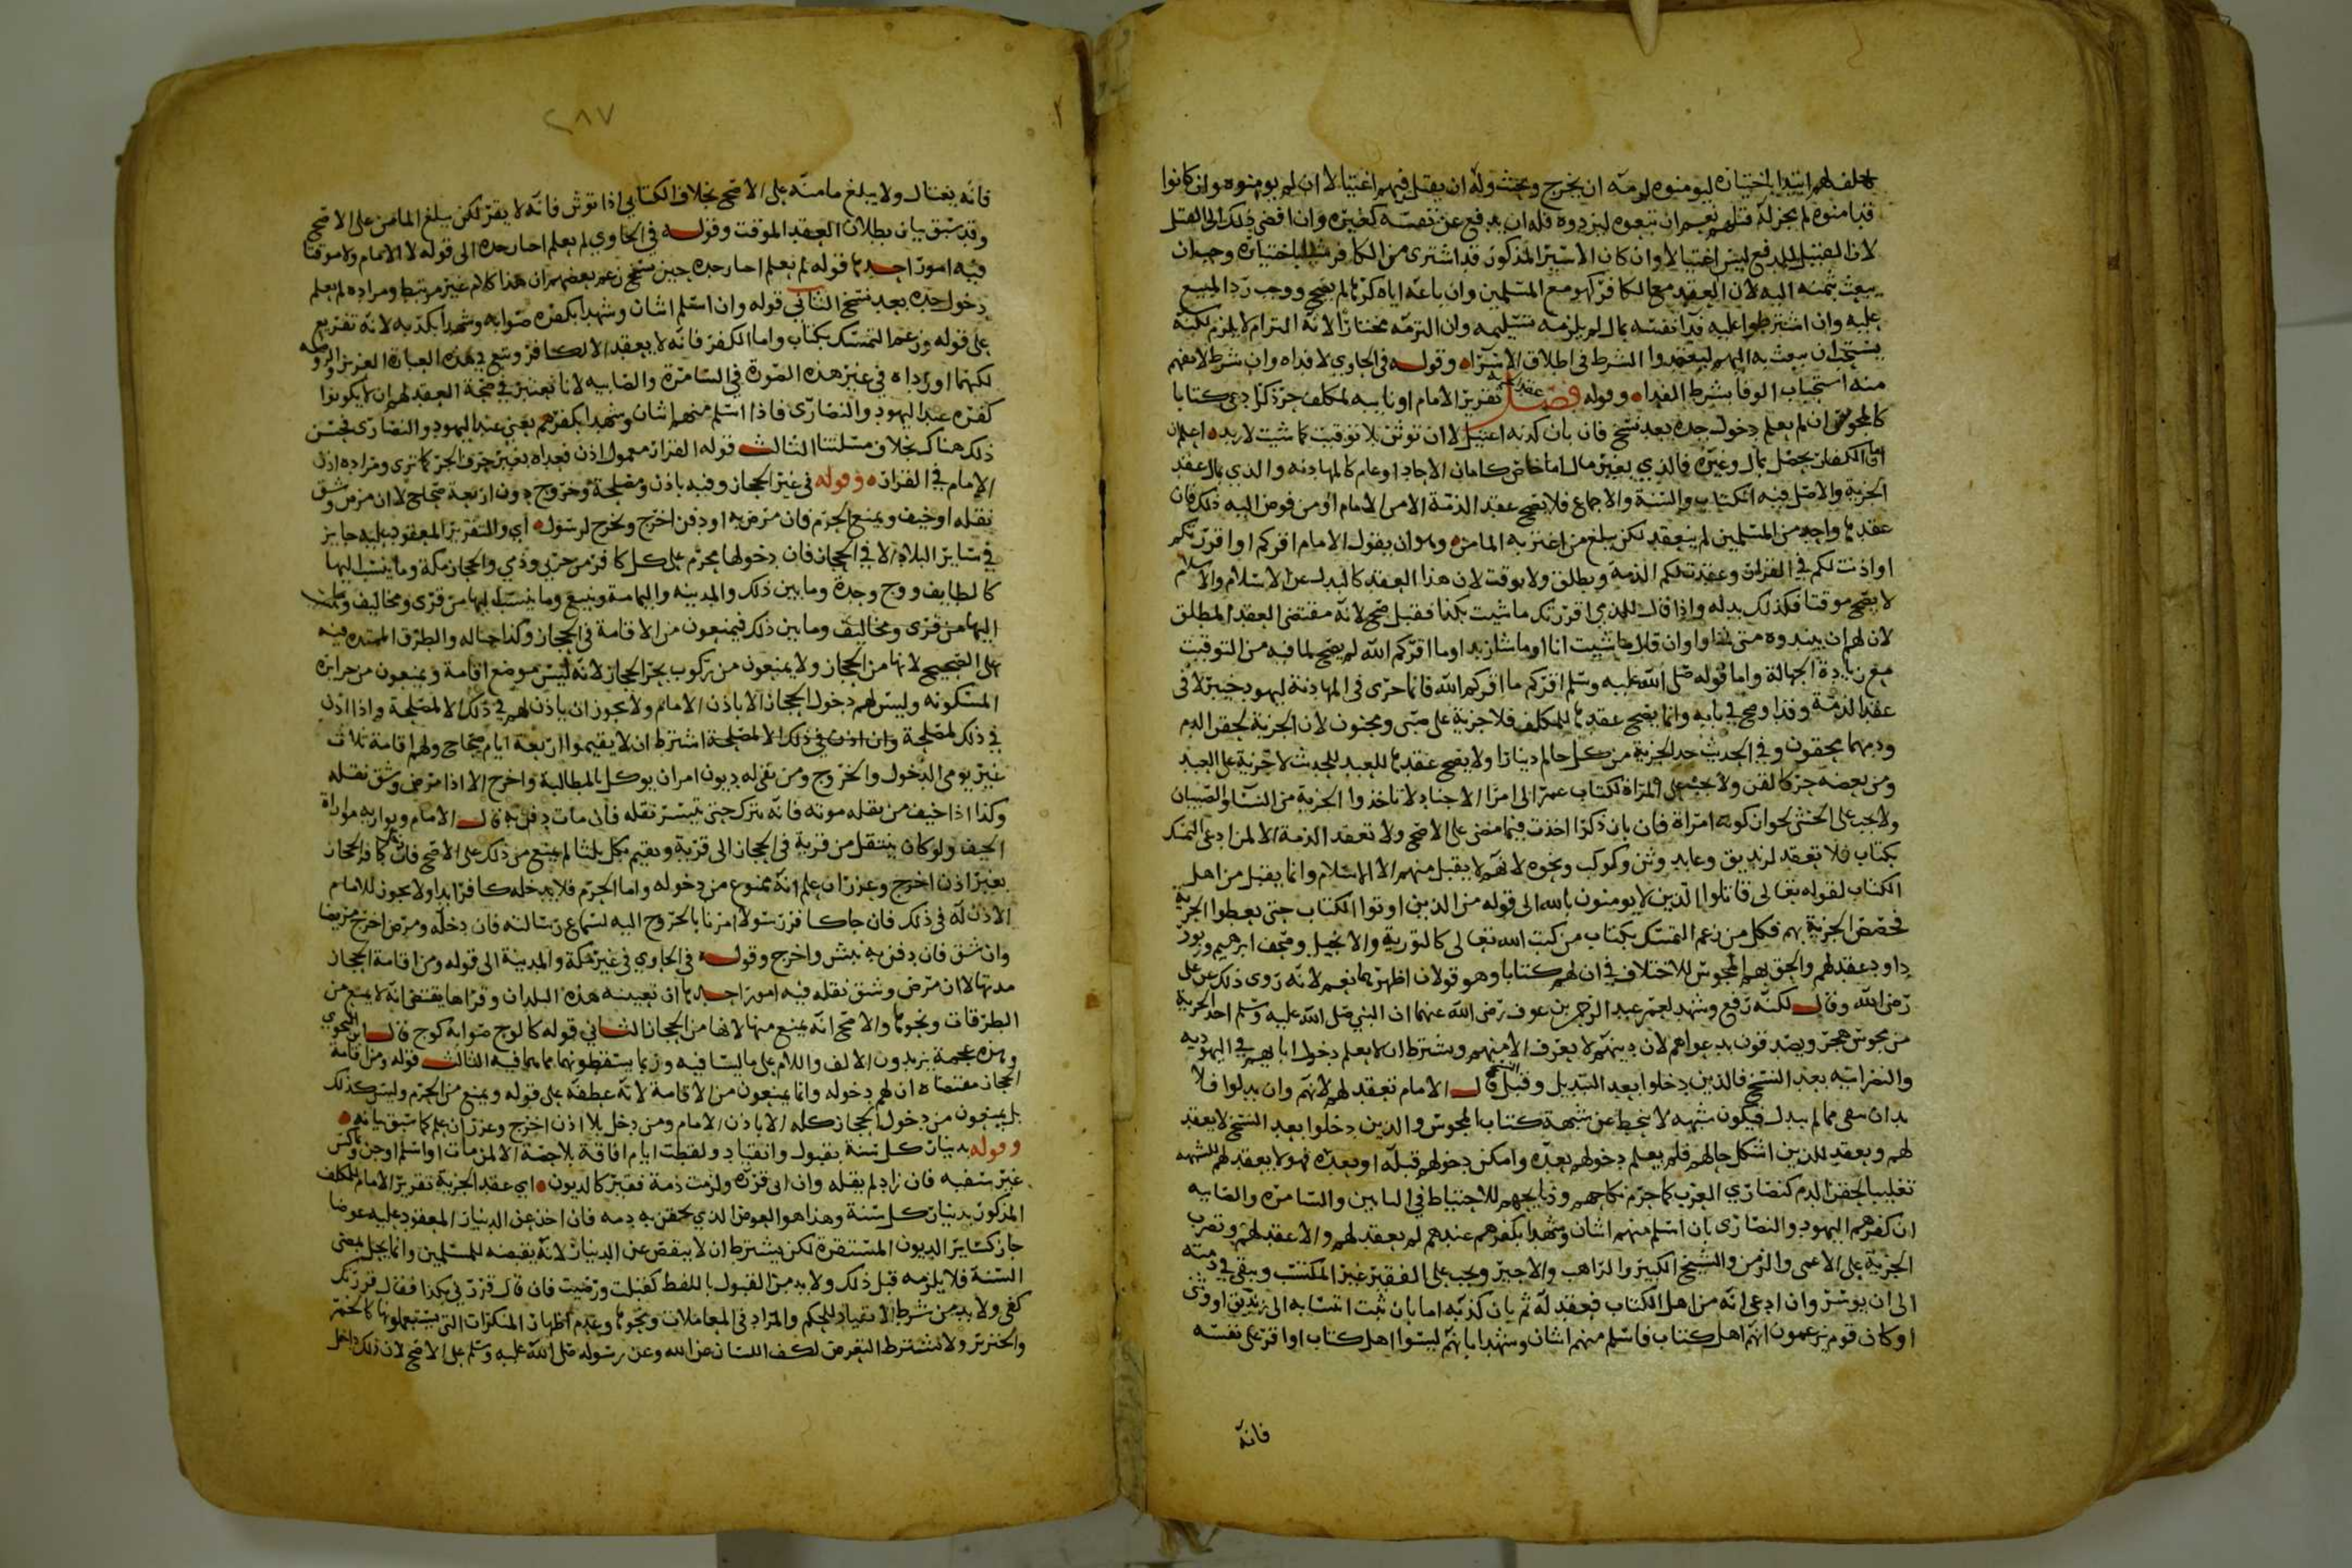 كحلفه لهم ابتدا باختياره ليومنوه لزمه ان يخرج ويحنث وله ان يقتل فيهم اغتيالا ان لم يومنوه وان كانوا
قد امنوه لم يجز له قتلهم نعم ان تبعوه ليردوه فله ان يدفع عن نفسه كغيره وان افضى ذلك الى القتل
لان القتل للدفع ليس اغتيالا وان كان الاسير المذكور قد اشترى من الكافر شيا باختياره وجب ان
يبعث ثمنه اليه لان العقد مع الكافر كهو مع المسلمين وان باعه اياه كرها لم يصح ووجب رد المبيع
عليه وان اشترطوا عليه فدا نفسه بمال لم يلزمه تسليمه وان التزمه مختارا لانه التزام لا يلزم لكنه
يستحب ان يبعث به اليهم ليعتمدوا الشرط في اطلاق الاسرا وقوله في الحاوي لا فداه وان شرط لا يفهم
منه استحباب الوفا بشرط الفدا وقوله فصل عقد الجزية تقرير الامام او نايبه لمكلف حر ذكر ادعى كتابا
كالمجوس ان لم يعلم دخول جده بعد نسخ فان بان كذبه اغتيل لا ان توثن بلا توقيت كما شيت لا زيد اعلم ان
امان الكفار يحصل بمال وغيره فالذي بغير مال اما خاص كامان الاحاد او عام كالمهادنه والذي بمال عقد
الجزية والاصل فيه الكتاب والسنة والاجماع فلا يصح عقد الذمة الا من الامام او من فوض اليه ذلك فان
عقدها واحد من المسلمين لم ينعقد لكن يبلغ من اغتر به المامن وهو ان يقول الامام اقركم او اقررتكم
او اذنت لكم في القرار وعقدت لكم الذمة ويطلق ولا يوقت لان هذا العقد كالبدل عن الاسلام والاسلام
لا يصح موقتا فكذلك بدله واذا قال للذمي اقررتك ما شيت بكذا فقبل صح لانه مقتضى العقد المطلق
لان لهم ان ينبذوه متى شاوا وان قال ما شيت انا او ما شا زيد او ما اقركم الله لم يصح لما فيه من التوقيت
مع زيادة الجهالة واما قوله صلى الله عليه وسلم اقركم ما اقركم الله فانما جرى في المهادنة ليهود خيبر لا في
عقد الذمة وقد اوضح في بابه وانما يصح عقدها للمكلف فلا جزية على صبى ومجنون لان الجزية لحقن الدم
ودمهما محقون وفي الحديث خذ الجزية من كل حالم دينارا ولا يصح عقدها للعبد للحديث لا جزية على العبد
ومن بعضه حر كالقن ولا يجب على المراة لكتاب عمر الى امرا الاجناد لا تاخذوا الجزية من النسا والصبيان
ولا يجب على الخنثى لجواز كونه امراة فان بان ذكرا اخذت فيما مضى على الاصح ولا تعقد الذمة الا لمن ادعى التمسك
بكتاب فلا تعقد لزنديق وعابد وثن وكوكب ونحوه لانهم لا يقبل منهم الا الاسلام وانما يقبل من اهل
الكتاب لقوله تعالى قاتلوا الذين لا يومنون بالله الى قوله من الذين اوتوا الكتاب حتى يعطوا الجزية
فخصص الجزية بهم فكل من زعم التمسك بكتاب من كتب الله تعالى كالتورية والانجيل وصحف ابرهيم وزبور
داود عقد لهم والحق بهم المجوس للاختلاف في ان لهم كتابا وهو قولان اظهرهما نعم لانه روى ذلك عن على
رضى الله وقال لكنه رفع وشهد لعمر عبد الرحمن بن عوف رضى الله عنهما ان النبي صلى الله عليه وسلم اخذ الجزية
من مجوس هجر ويصدقون بدعواهم لان دينهم لا يعرف الا منهم ويشترط ان لا يعلم دخول ابايهم في اليهوديه
والنصرانيه بعد النسخ فالذين دخلوا بعد التبديل وقبل النسخ قال الامام تعقد لهم لانهم وان بدلوا فلا
بد ان يبقى مما لم يبدل فيكون شبهه لا ينحط عن شبهة كتاب المجوس والذين دخلوا بعد النسخ لا يعقد
لهم ويعقد للذين اشكل حالهم فلم يعلم دخولهم بعده وامكن دخولهم قبله او بعده فهولا يعقد لهم للشبهه
تغليبا لحقن الدم كنصارى العرب كما حرم نكاحهم وذبايحهم للاحتياط في البابين والسامره والصابيه
ان كفرهم اليهود والنصارى بان اسلم منهم اثنان وشهدا بكفرهم عندهم لم يعقد لهم والا عقد لهم وتضرب
الجزية على الاعمى والزمن والشيخ الكبير والراهب والاجير ويجب على الفقير غير المكتسب ويبقى في ذمته
الى ان يوسر وان ادعى انه من اهل الكتاب فعقد له ثم بان كذبه اما بان ثبت انتسابه الى زنديق او وثنى
او كان قوم يزعمون انهم اهل كتاب فاسلم منهم اثنان وشهدا بانهم ليسوا اهل كتاب او اقر على نفسه
فانه
٢٨٧
فانه يغتال ولا يبلغ مامنه على الاصح بخلاف الكتابي اذا توثن فانه لا يقر لكن يبلغ المامن على الاصح
وقد سبق بيان بطلان العقد الموقت وقوله في الحاوي لم يعلم اختار جده الى قوله لا الامام ولا موقتا
فيه امور احدها قوله لم نعلم اختار جده حين نسخ زعم بعضهم ان هذا كلام غير مرتبط ومراده لم يعلم
دخول جده بعد نسخ الثاني قوله وان اسلم اثنان وشهدا بكفره صوابه وشهدا بكذبه لانه تفريع
على قوله وزعم التمسك بكتاب واما الكفر فانه لا يعقد الا لكافر وتبع في هذه العبارة العزيز والروضه
لكنهما اورداه في غير هذه الصورة في السامرة والصابيه لانا نعتبر في صحة العقد لهم ان لا يكونوا
كفره عند اليهود والنصارى فاذا اسلم منهم اثنان وشهدا بكفرهم يعني عند اليهود والنصارى فحسن
ذلك هناك بخلاف مسئلتنا الثالث قوله القرار معمول اذن فعداه بغير حرف الجر كما ترى ومراده اذن
الامام في القرار وقوله في غير الحجاز وفيه باذن ومصلحة وخروج دون اربعة صحاح لا ان مرض وشق
نقله او خيف ويمنع الحرم فان مرض به او دفن اخرج ويخرج لرسول اي والتقرير المعقود عليه جايز
في ساير البلاد لا في الحجاز فان دخولها محرم على كل كافر من حربى وذمي والحجاز مكة وما ينسب اليها
كالطايف ووج وجدة وما بين ذلك والمدينه واليمامة وينبع وما ينسب اليها من قرى ومخاليف وما ينسب
اليها من قرى ومخاليف وما بين ذلك فيمنعون من الاقامة في الحجاز وكذا جباله والطرق الممتده فيه
على الصحيح لانها من الحجاز ولا يمنعون من ركوب بحر الحجاز لانه ليس موضع اقامة ويمنعون من جزايره
المسكونه وليس لهم دخول الحجاز الا باذن الامام ولا يجوز ان ياذن لهم في ذلك الا لمصلحة واذا اذن
في ذلك لمصلحة وان اذن في ذلك الا لمصلحة اشترط ان لا يقيموا اربعة ايام صحاح ولهم اقامة ثلاث
غير يومي الدخول والخروج ومن بقى له ديون امر ان يوكل بالمطالبة واخرج الا اذا مرض وشق نقله
وكذا اذا خيف من نقله موته فانه يترك حتى يتيسر نقله فان مات دفن به قال الامام ويواريه مواراة
الجيف ولو كان ينتقل من قرية في الحجاز الى قرية ويقيم بكل ثلثا لم يمنع من ذلك على الاصح فان دخل كافر الحجاز
بغير اذن اخرج وعزر ان علم انه ممنوع من دخوله واما الحرم فلا يدخله كافر ابدا ولا يجوز للامام
الاذن له في ذلك فان جا كافر رسولا امرنا بالخروج اليه لسماع رسالته فان دخله ومرض اخرج مريضا
وان شق فان دفن به نبش واخرج وقوله في الحاوي في غير مكة والمدينة الى قوله ومن اقامة الحجاز
مدتها لا ان مرض وشق نقله فيه امور احدها ان تعيينه هذه البلدان وقراها يقتضى انه لا يمنع من
الطرقات ونحوها والاصح انه يمنع منها لانها من الحجاز الثاني قوله كالوج صوابه كوج قال ابن النحوي
وهذه عجمة يزيدون الالف واللام على ما ليستا فيه وربما يسقطونهما مما هما فيه الثالث قوله ومن اقامة
الحجاز مقتضاه ان لهم دخوله وانما يمنعون من الاقامة لانه عطفه على قوله ويمنع من الحرم وليس كذلك
بل يمنعون من دخول الحجاز كله الا باذن الامام ومن دخل بلا اذن اخرج وعزر ان علم كما سبق بيانه
وقوله بدينار كل سنة بقبول وانقياد ولقطت ايام افاقة بلا حصة الا لمن مات او اسلم او جن وماكس
غير سفيه فان زاد لم يقله وان ابى قرره ولزمت ذمة فقير كالديون اي عقد الجزية تقرير الامام للمكلف
المذكور بدينار كل سنة وهذا هو العوض الذي يحقن به دمه فان اخذ عن الدينار المعقود عليه عوضا
جاز كساير الديون المستقرة لكن يشترط ان لا ينقص عن الدينار لانه يقبضه للمسلمين وانما يحل بمضى
السنة فلا يلزمه قبل ذلك ولا بد من القبول باللفظ كقبلت ورضيت فان قال قررني بكذا فقال قررتك
كفى ولا بد من شرط الانقياد للحكم والمراد في المعاملات ونحوها وعدم اظهار المنكرات التي يستحلونها كالخمر
والخنزير ولا نشترط التعرض لكف اللسان عن الله وعن رسوله صلى الله عليه وسلم على الاصح لان ذلك داخل